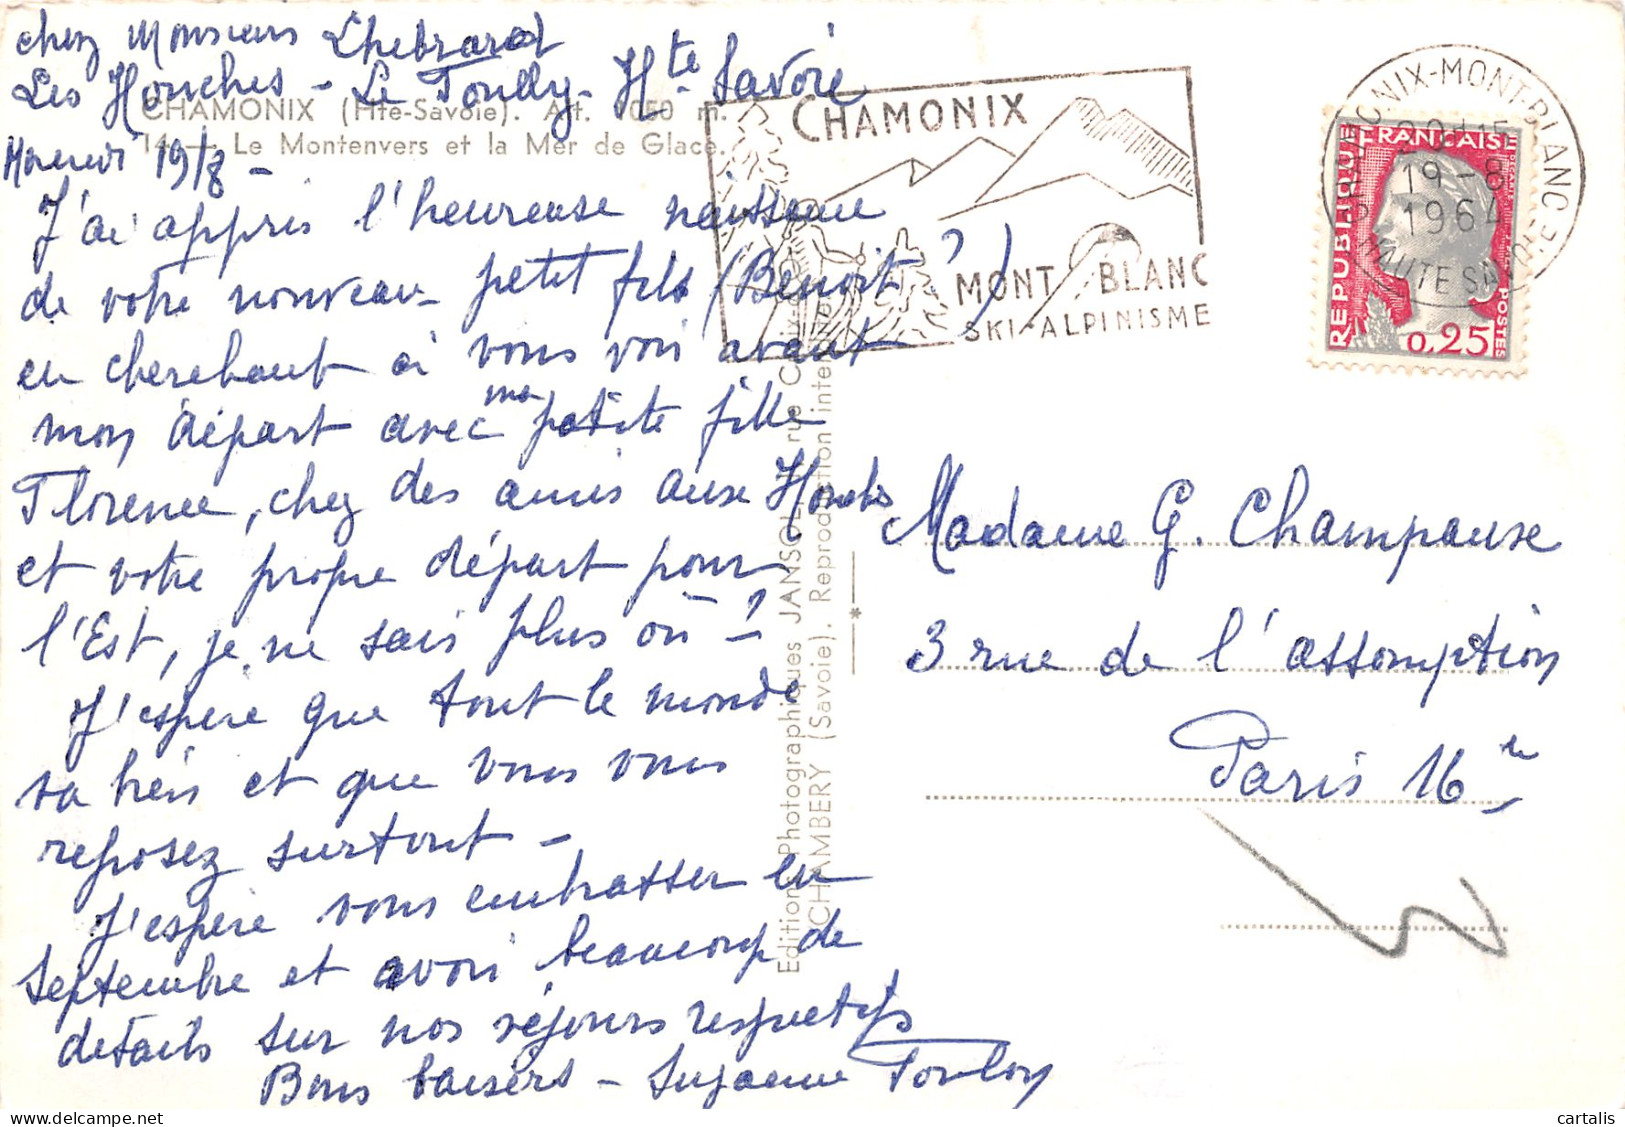 chez Monsieur Chebrard
Les Houches - Le Fouilly - Hte Savoie
CHAMONIX (Hte-Savoie). Alt. 1050 m.
14. — Le Montenvers et la Mer de Glace.
19/8 -
J'ai appris l'heureuse naissance
de votre nouveau petit fils (Benoit ?)
en cherchant à vous voir avant
mon départ avec ma petite fille
Florence, chez des amis aux Houches
et votre propre départ pour
l'Est, je ne sais plus où !
J'espère que tout le monde
va bien et que vous vous
reposez surtout -
J'espère vous embrasser en
Septembre et avoir beaucoup de
détails sur nos séjours respectifs
Bons baisers - Suzanne
Editions Photographiques JANSOL, rue Croix-
CHAMBERY (Savoie). Reproduction inter
CHAMONIX
MONT BLANC
SKI-ALPINISME
CHAMONIX-MONT-BLANC
15
19-8
1964
HAUTE SAVOIE
REPUBLIQUE FRANÇAISE
POSTES
0,25
Madame G. Champause
3 rue de l'assomption
Paris 16e
cartalis